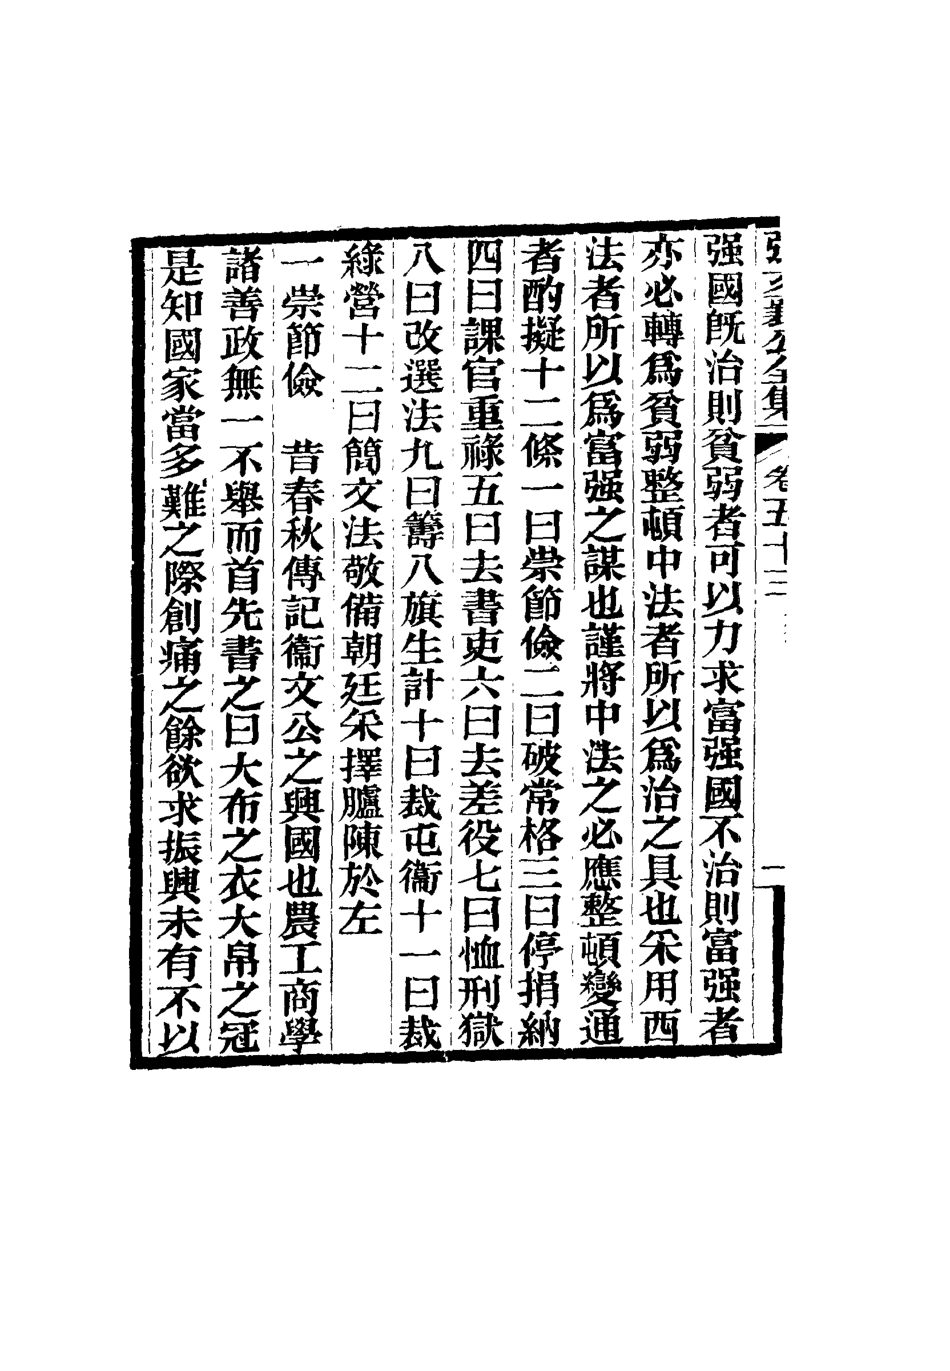 張文襄公全集 卷五十三 一
强國既治則貧弱者可以力求富强國不治則富强者
亦必轉爲貧弱整頓中法者所以爲治之具也采用西
法者所以爲富强之謀也謹將中法之必應整頓變通
者酌擬十二條一曰崇節儉二曰破常格三曰停捐納
四曰課官重祿五曰去書吏六曰去差役七曰恤刑獄
八曰改選法九曰籌八旗生計十曰裁屯衞十一曰裁
綠營十二曰簡文法敬備朝廷采擇臚陳於左
一崇節儉 昔春秋傳記衞文公之興國也農工商學
諸善政無一不舉而首先書之曰大布之衣大帛之冠
是知國家當多難之際創痛之餘欲求振興未有不以